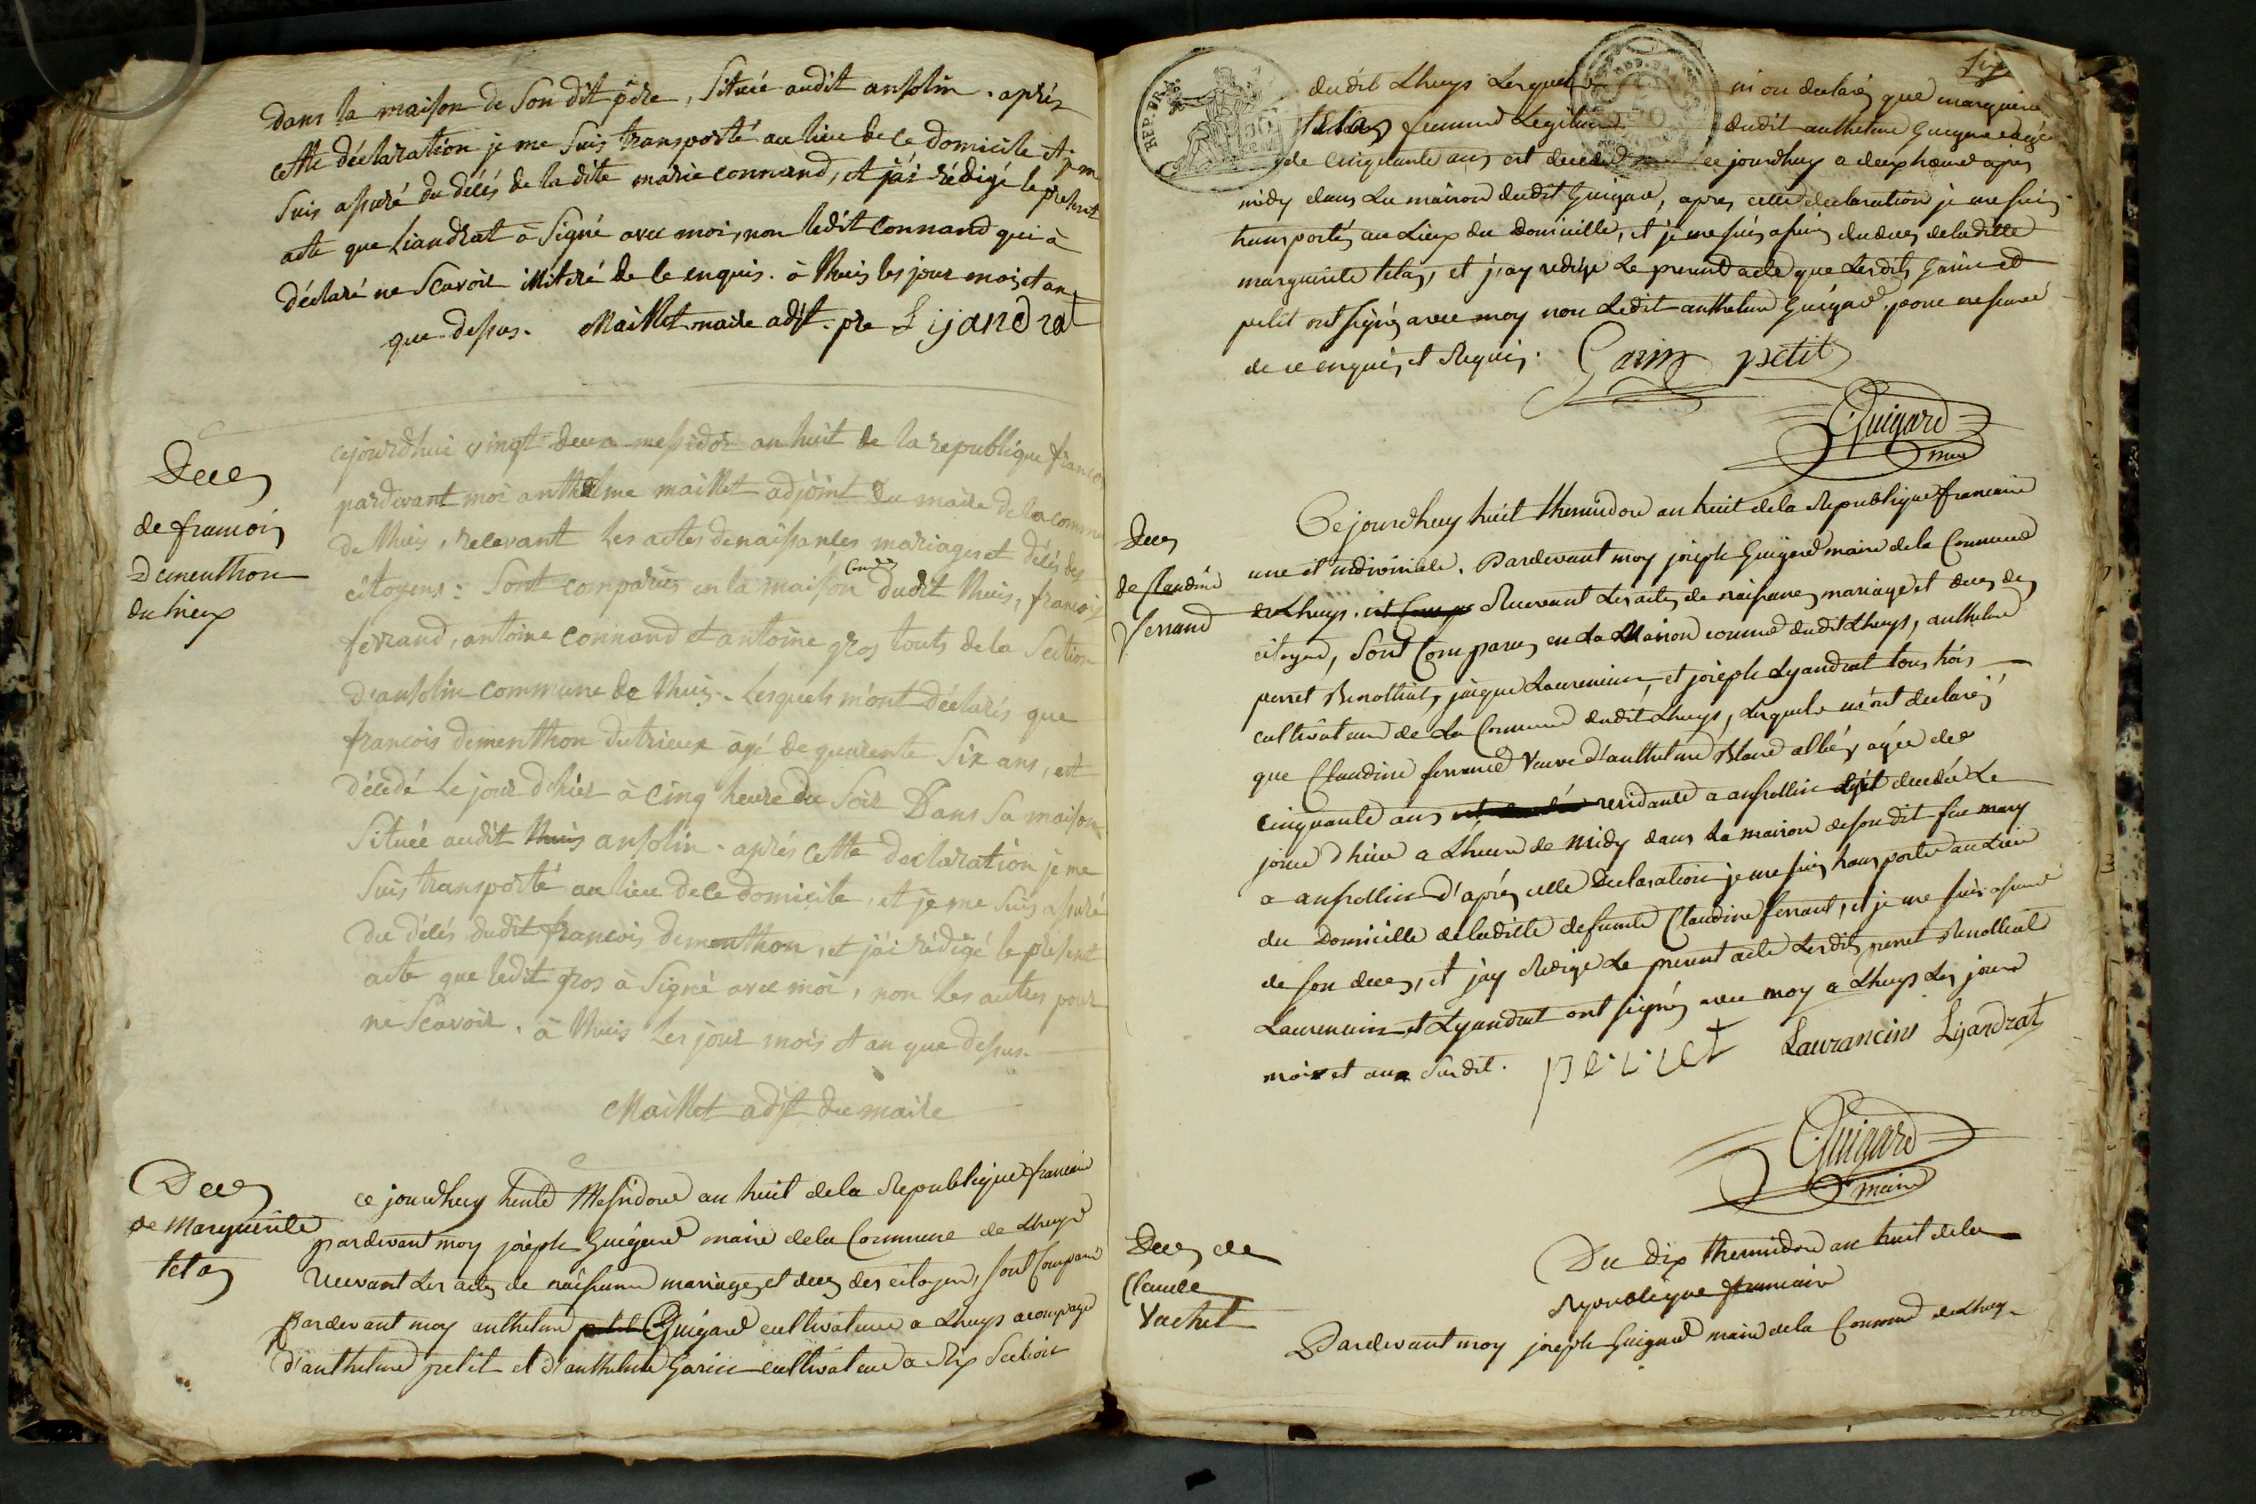 dans la maison de son dit père, située audit ansolin. après
cette déclaration je me suis transporté au lieu de ce domicile et je m
suis assuré du décés de la dite marie connand, et j'ai rédigé le présent
acte que Liandrat à signé avec moi, non ledit connand qui à
déclaré ne scavoir illitéré de le enquis. à Lhuis les jour mois et an
que dessus. Maillet maire adjt. pre Lijandrat
Deces
de francois
Dementhon
dutrieux
cejourdhui vingt deux messidor an huit de la republique francoi
pardevant moi anthelme maillet adjoint du maire de la comm
de lhuis, recevant les actes de naissances mariages et décés des
citoyens: sont comparus en la maison comne dudit lhuis, francois
ferrand, antoine connand et antoine gros touts de la section
d'ansolin commune de lhuis. Lesquels m'ont déclarés que
francois dementhon dutrieux agé de quarente six ans, est
décédé le jour d'hier à cinq heure du soir Dans sa maison
située audit lhuis ansolin. après cette declaration je me
suis transporté au lieu de ce domicile, et je me suis assuré
du décés dudit francois dementhon, et j'ai rédigé le présent
acte que ledit gros à signé avec moi, non les autres pour
ne scavoir. à lhuis les jour mois et an que dessus.
Maillet adjt du maire
Deces
de Marguerite
tetaz
ce jourdhuy trente Messidore an huit de la Republique francaise
pardevant moy joseph Guigard maire de la Commune de Lhuys
recevant les actes de naissance mariages et deces des citoyens, sont Comparu
Pardevant moy anthelme petit Guigard cultivateur a Lhuys acompagné
d'anthelme petit et d'anthelme Garin cultivateur a Rix section
dudit Lhuys Lesquels m'on declarés que marguerite
tetaz femme Legitime dudit anthelme Guigard agée
de cinquante ans est decedée ce jourdhuy a deux heures apres
midy dans La maison dudit Guigard, apres cette declaration je me suis
transportés au Lieux du domicille, et je me suis assuré du deces de laditte
marguerite tetaz, et j'ay redigé Le present acte que Lesdits Garin et
petit ont signés avec moy non Ledit anthelme Guigard pour ne savoir
de ce enquis et Requis. Garin petit
Guigard
maire
Deces
de claudine
ferrand
Ce jourdhuy huit thermidore an huit de la Republique francaise
une et indivisible. Pardevant moy joseph Guigard maire de la Commune
de Lhuys. Recevant Les actes de naissances mariage et deces des
citoyens, Sont Comparus en La Maison comune dudit Lhuys, anthelme
perret Benotliat, jaque Laurencin, et joseph Lyandrat tous trois
cultivateur de La Commune dudit Lhuys, Lesquels m'ont declarés
que Claudine ferrand veuve d'anthelme Blanc allées agée de
cinquante ans residante a ansollin est decedée Le
jour d'hier a Lheure de midy dans La maison de son dit feu mary
a ansollin d'après cette declaration je me suis transporté au Lieu
du Domicille de laditte defunte Claudine ferrant, et je me suis assuré
de son deces, et j'ay Redigé Le present acte Lesdits perret Benotliat
Laurencin et Lyandrat ont signés avec moy a Lhuys Les jour
mois et an Susdit. perret Laurancins Lijandrat
Guigard
maire
Deces de
Claude
Vachet
Du dix thermidore an huit de la
Republique francaise
Pardevant moy joseph Guigard maire de la Commune de Lhuy